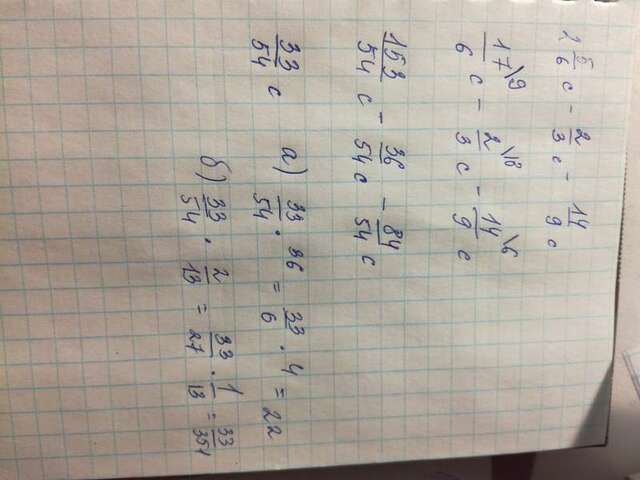 2 5/6 c - 2/3 c - 14/9 c
17\9/6 c - 2\18/3 c - 14\6/9 c
153/54 c - 36/54 c - 84/54 c
33/54 c
а) 33/54 · 36 = 33/6 · 4 = 22
б) 33/54 · 2/13 = 33/27 · 1/13 = 33/351